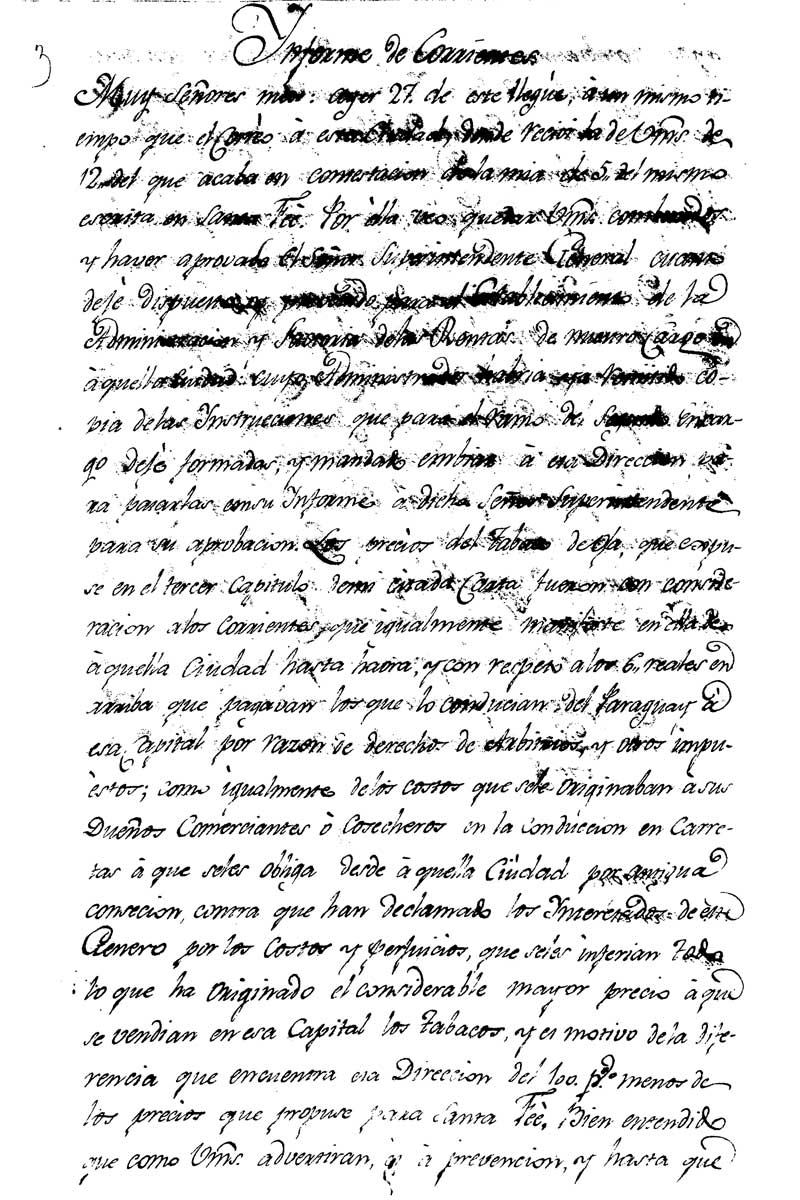 3
Informe de Corrientes
Muy Señores mios: ayer 27. de este llegúe, à un mismo ti-
empo que el Correo à esta Ciudad, donde recivi la de Vms. de
12. del que acaba en contestacion de la mia de 5. del mismo
escrita en Santa Feé. Por ella veo quedar Vms.
y haver aprovado el Señor Superintendente General cuanto
dejè dispuesto, y para el establecimiento de la
Administracion y Factoria de las Rentas de nuestro Cargo en
àquella Ciudad: cuyo Administrador havria ya co-
pia de las Instrucciones que para el Ramo del encar-
go dejè formadas, y mandado embiar à esa Direccion pa-
ra pasarlas con su Informe à dicho Señor Superintendente
para su aprobacion. Los precios del Tabaco de oja, que expu-
se en el tercer Capitulo de mi citada Carta fueron con conside-
racion a los Corrientes, que igualmente manifeste en ella de
àquella Ciudad hasta haora, y con respeto a los 6,, reales en
arriba que pagavan los que lo conducian del Paraguay à
esa Capital por razon de derechos de Arbitrios, y otros impu-
èstos; como igualmente de los costos que se le originaban à sus
Dueños Comerciantes ò Cosecheros en la conduccion en Carre-
tas à que se les obliga desde àquella Ciudad por antigua
consecion, contra que han declamado los Interesados de este
Genero por los Costos y perjuicios, que se les inferian todo
lo que ha originado el considerable mayor precio à que
se vendian en esa Capital los tabacos, y es motivo de la dife-
rencia que encuentra esa Direccion del 100. p%. menos de
los precios que propuse para Santa Feé. Bien entendido
que como Vms. advertiran, à prevencion, y hasta que